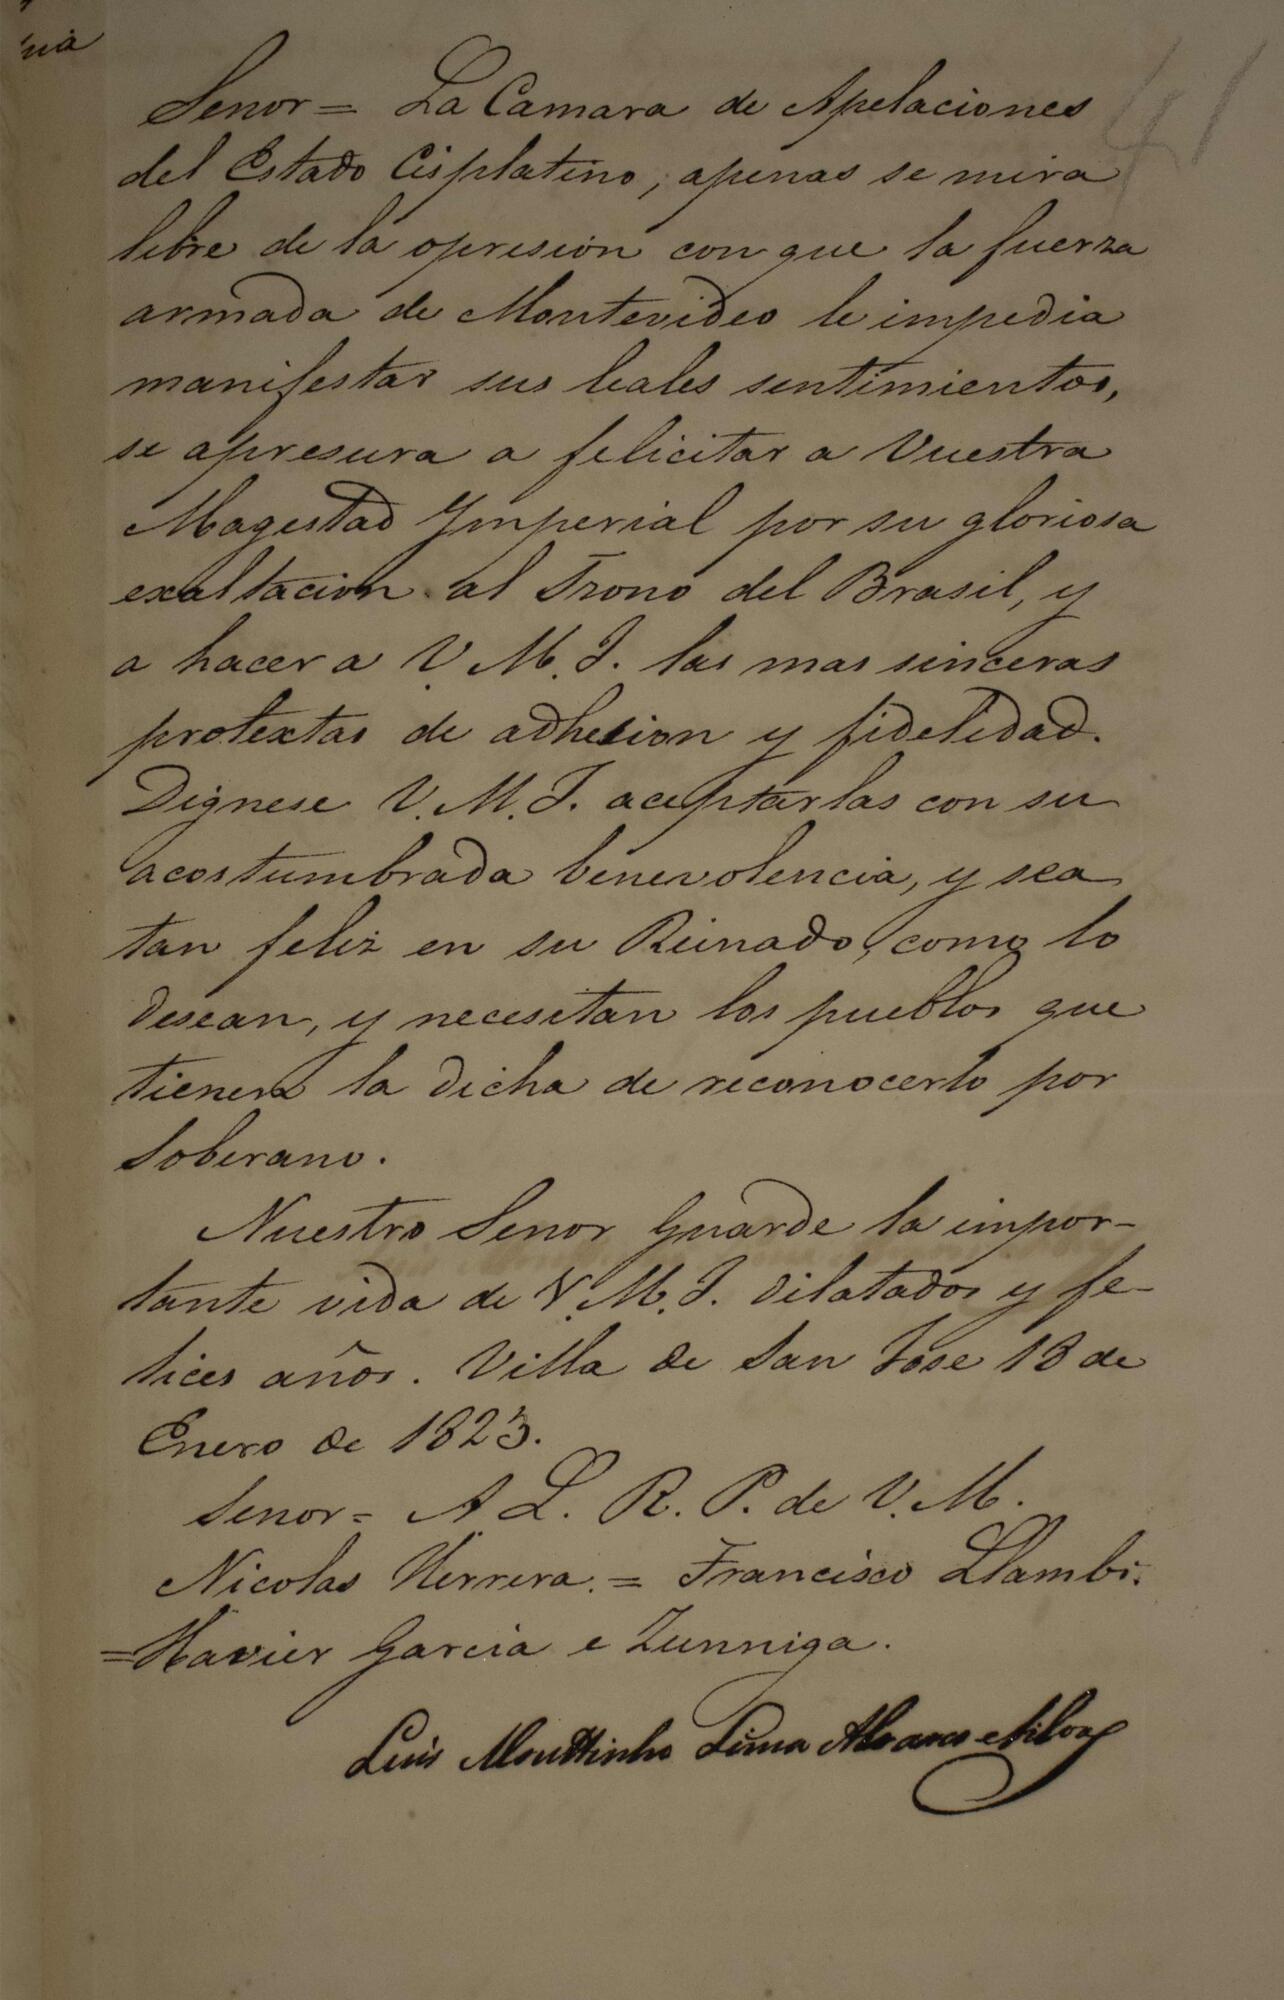 41
Senor = La Camara de Apelaciones
del Estado Cisplatino, apenas se mira
libre de la opresion con que la fuerza
armada de Montevideo le impedia
manifestar sus leales sentimientos,
se apresura a felicitar a Vuestra
Magestad Ymperial por su gloriosa
exaltacion al Trono del Brasil, y
a hacer a V. M. I. las mas sinceras
protextas de adhesion y fidelidad.
Dignese V. M. I. aceptarlas con su
acostumbrada benevolencia, y sea
tan feliz en su Reinado, como lo
desean, y necesitan los pueblos que
tienen la dicha de reconocerlo por
Soberano.
Nuestro Senor Guarde la impor-
tante vida de V. M. I. dilatados y fe-
lices años. Villa de San Jose 13 de
Enero de 1823.
Senor = A L. R. P. de V. M.
Nicolas Herrera. = Francisco Llambi.
= Havier Garcia e Zunniga.
Luis Mouttinho Lima Alvares e Silva